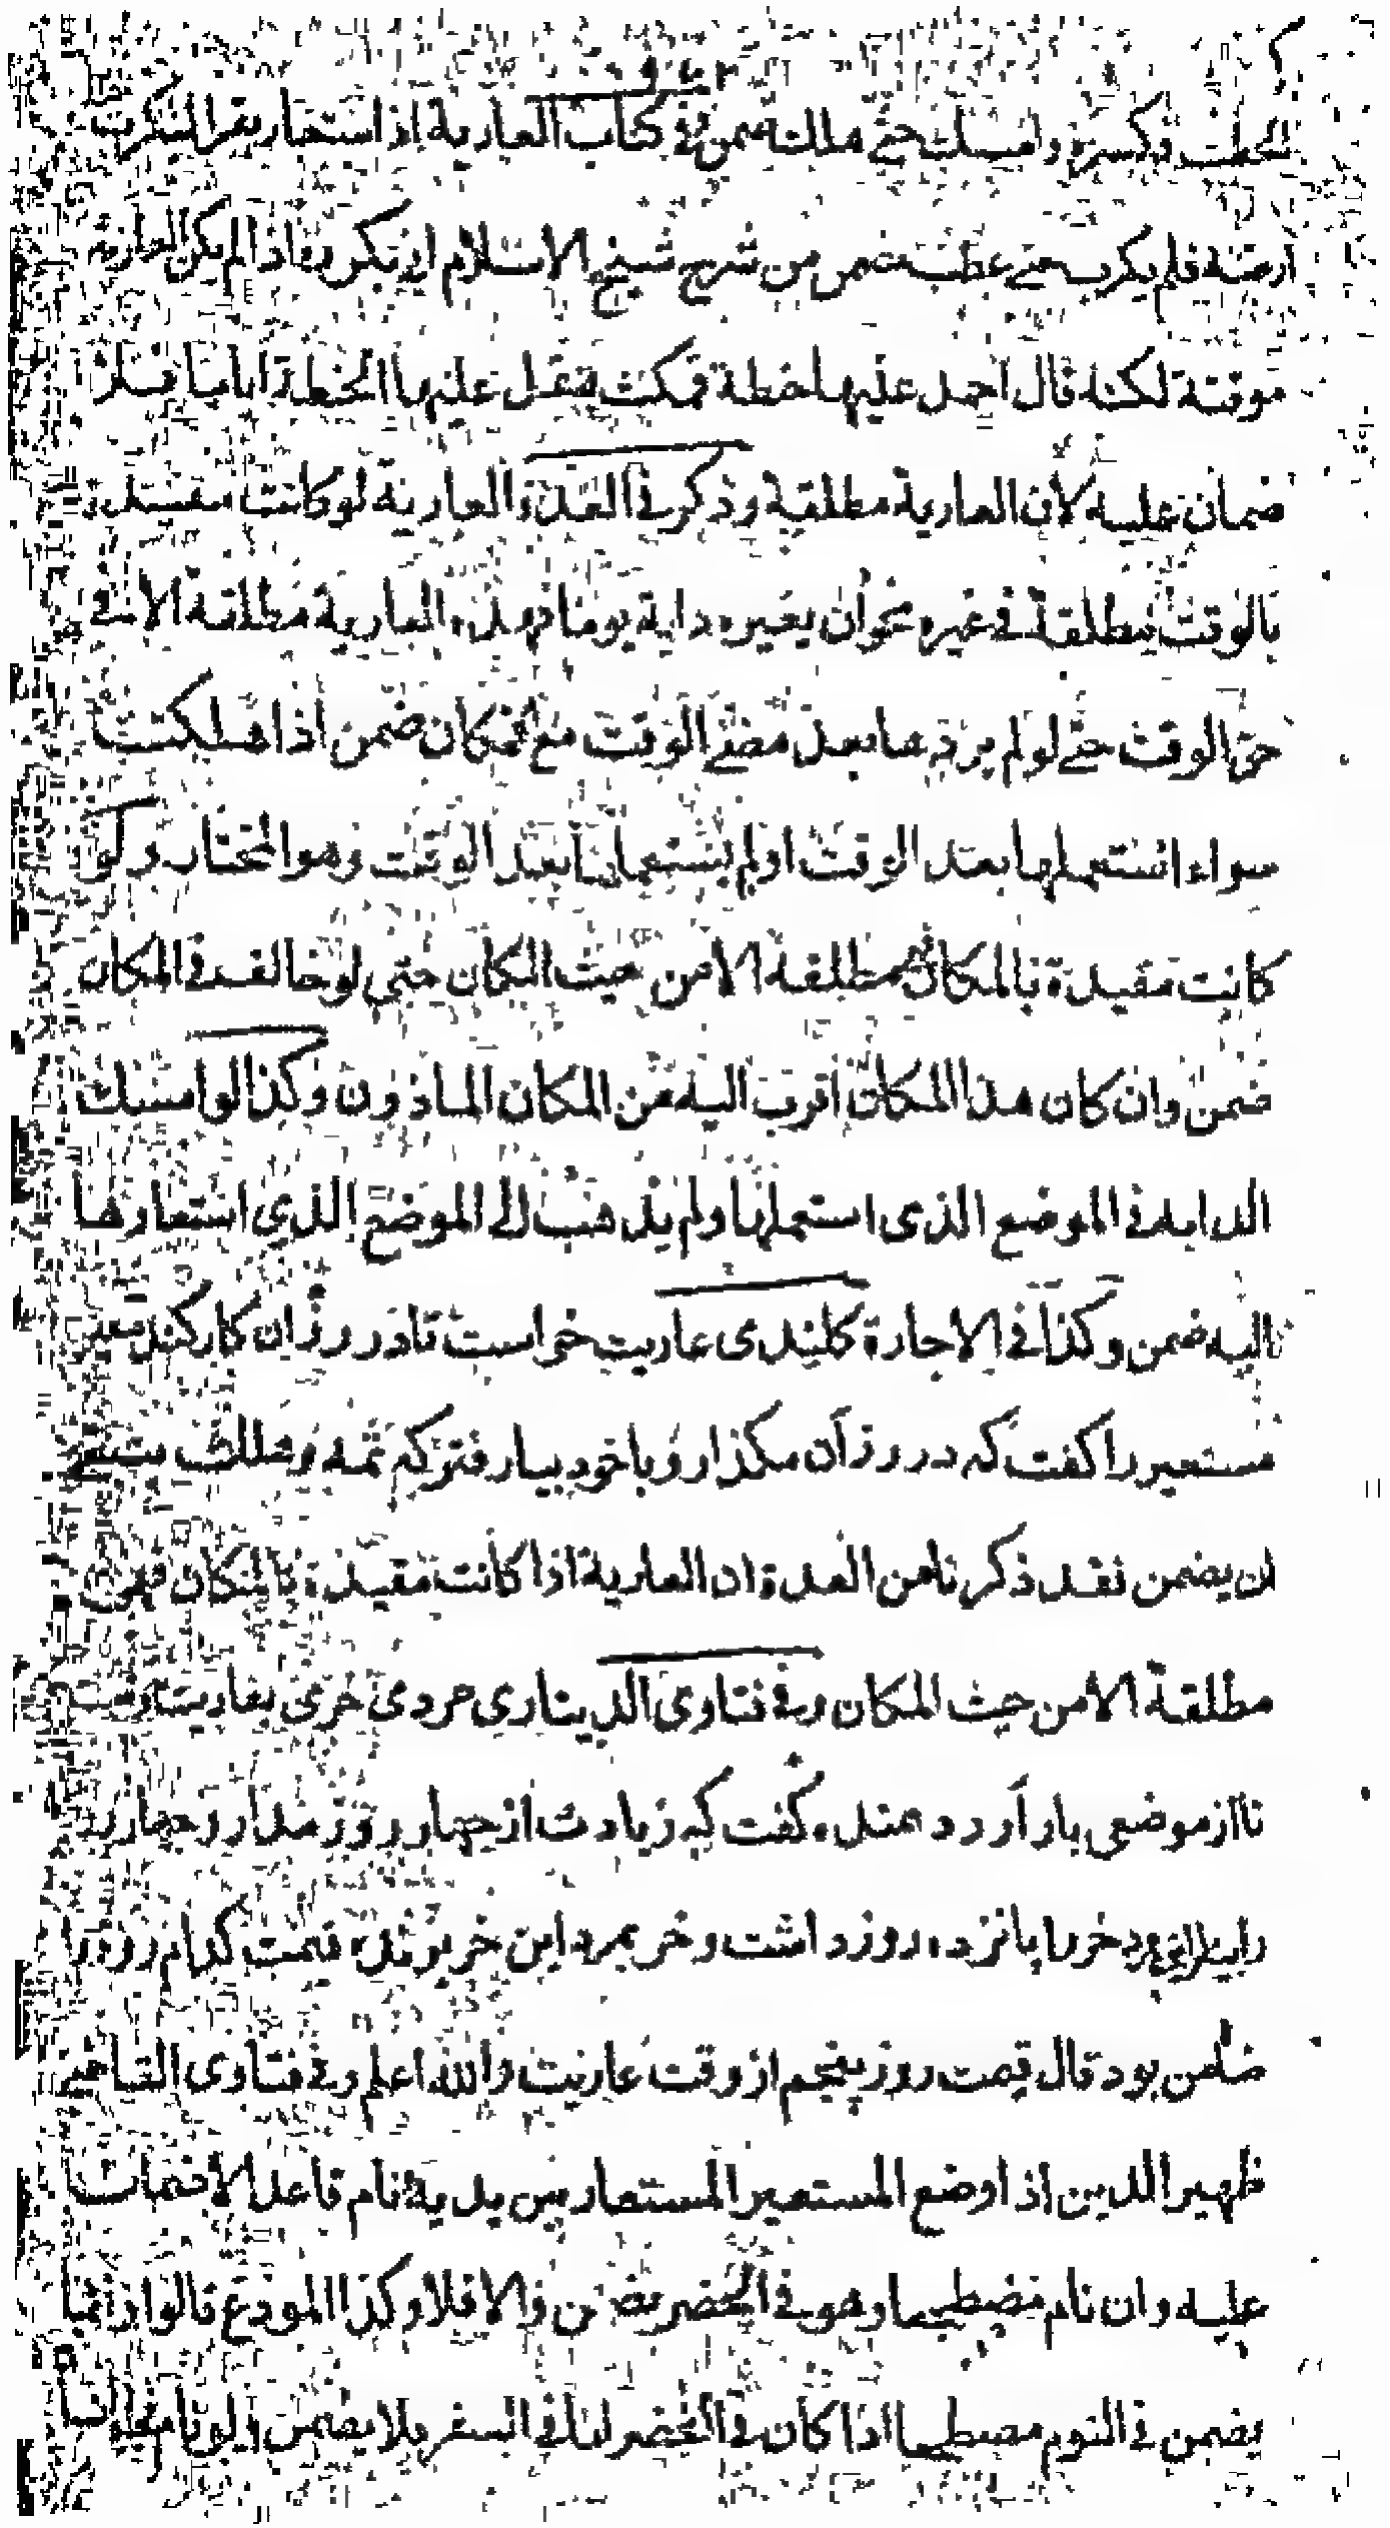 الحطب فكسره وامسك حتى هلك ضمن وفي كتاب العارية اذا استعار بقرا ليكرب
ارضه فلم يكربه حتى عطب ضمن من شرح شيخ الاسلام ان بكر ره اذا لم يكن العارية
موقتة لكنه قال احمل عليها حنطة فمكث ينقل عليها الحنطة اياما فلا
ضمان عليه لأن العارية مطلقة وذكر في العدة والعارية لو كانت مقيدة
بالوقت مطلقة في غيره نحو أن يعيره دابة يوما فهذه العارية مطلقة الا في
حق الوقت حتى لو لم يردها بعد مضي الوقت مع امكان ضمن اذا هلكت
سواء استعملها بعد الوقت او لم يستعملها بعد الوقت وهو المختار ولو
كانت مقيدة بالمكان فهي مطلقة الا من حيث المكان حتى لو خالف في المكان
ضمن وان كان هذا المكان أقرب اليه من المكان الماذون وكذا لو امسك
الدابه في الموضع الذي استعملها ولم يذهب الى الموضع الذي استعارها
اليه ضمن وكذا في الاجارة كلندى عاريت خواست تا در رزان كار كند معير
مستعير را كفت كه در رزان مكذار و با خود بيار فتركه ثمه وهلك
ان يضمن فقد ذكرنا من العدة ان العارية اذا كانت مقيدة بالمكان فهي
مطلقة الا من حيث المكان وفي فتاوى الديناري مردى خرى بعاريت
تا از موضعى بار آرد دهنده كفت كه زيادت از چهار روز مدار و چهار روز
خر را پانزده روز داشت و خر بمرد اين خر برنده قيمت كدام روز را
ضامن بود قال قيمت روز پنجم از وقت عاريت والله اعلم وفي فتاوى القاضي
ظهير الدين اذا وضع المستعير المستعار بين يديه ونام قاعدا لا ضمان
عليه وان نام مضطجعا وهو في الحضر يضمن والا فلا وكذا المودع قالوا انما
يضمن في النوم مضطجعا اذا كان في الحضر اما في السفر فلا يضمن ولو نام